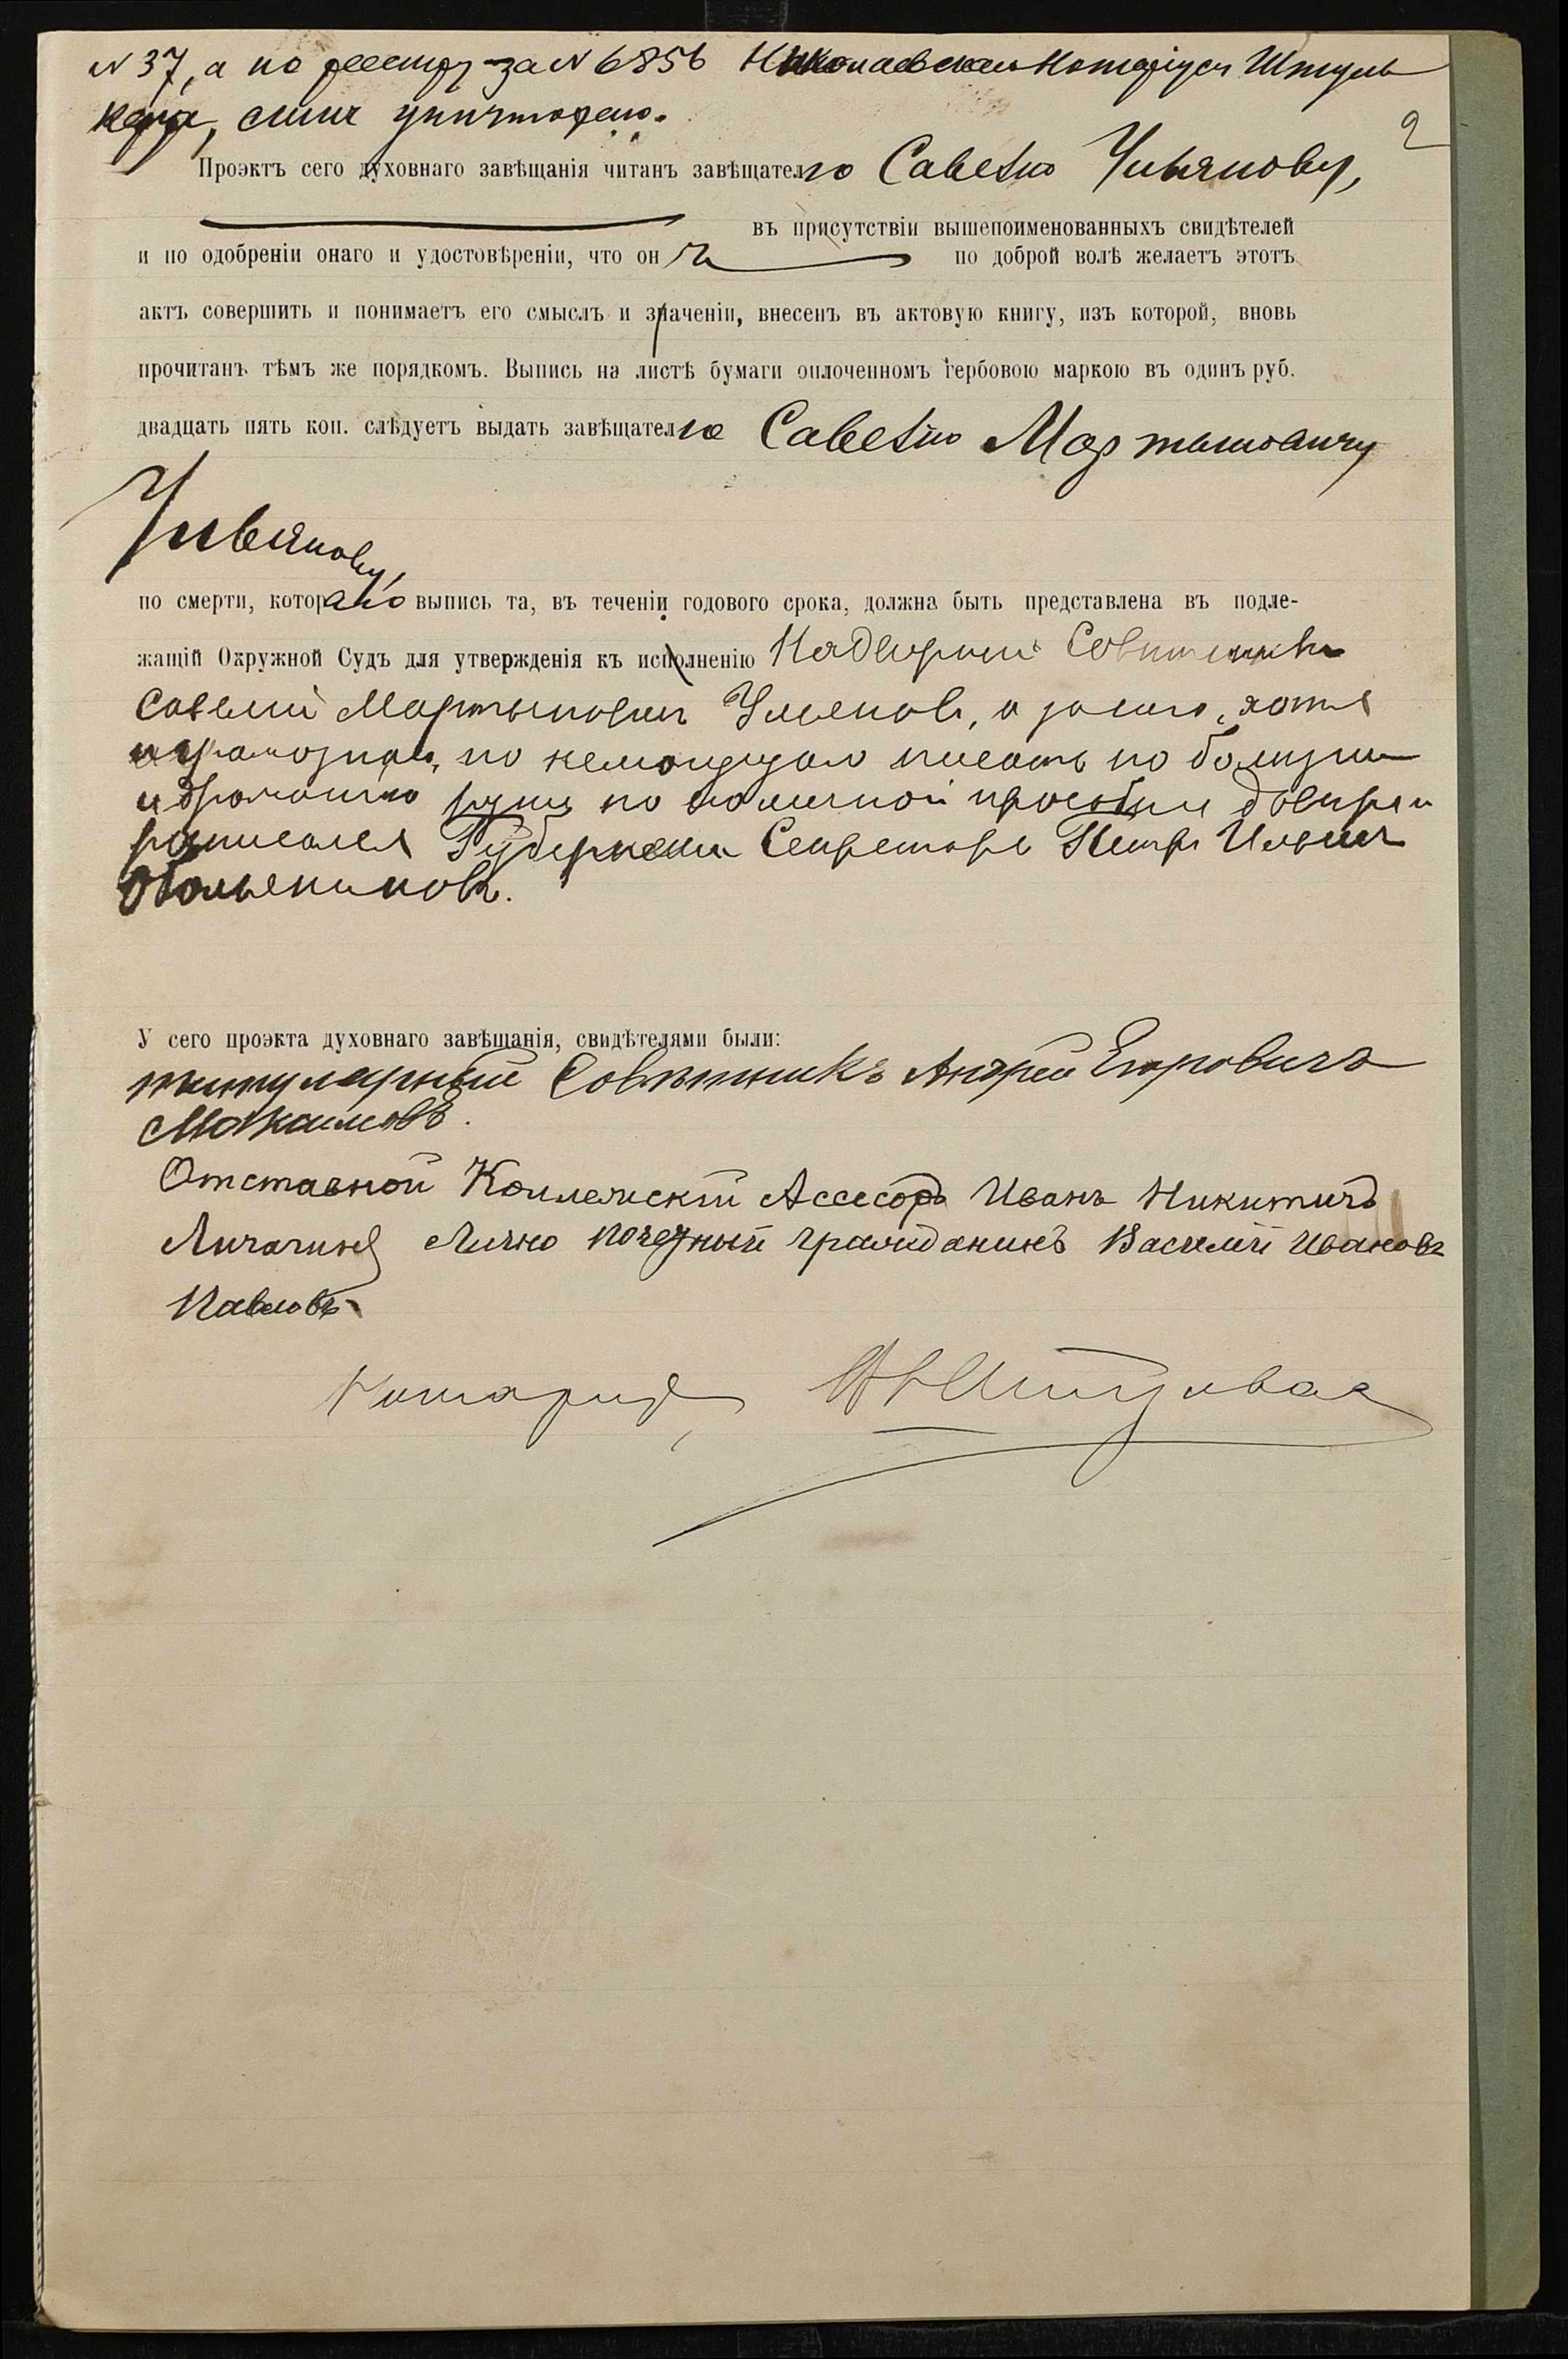 № 37, а по реестру за № 6856 Николаевскаго Нотаріуса Штуль
кера, симъ уничтожено.
2
Проэктъ сего духовнаго завѣщанія читанъ завѣщателю Савелію Ульянову,
въ присутствіи вышепоименованныхъ свидѣтелей
и по одобреніи онаго и удостовѣреніи, что онъ по доброй волѣ желаетъ этотъ
актъ совершить и понимаетъ его смыслъ и значеніи, внесенъ въ актовую книгу, изъ которой, вновь
прочитанъ тѣмъ же порядкомъ. Выпись на листѣ бумаги оплоченномъ гербовою маркою въ одинъ руб.
двадцать пять коп. слѣдуетъ выдать завѣщателю Савелію Мартыновичу
Ульянову,
по смерти, котораго выпись та, въ теченіи годового срока, должна быть представлена въ подле-
жащій Окружной Судъ для утвержденія къ исполненію Надворный Совѣтникъ
Савелій Мартыновичъ Ульяновъ, а за него, хотя
грамотнаго, но немогущаго писать по болѣзни
и дрожанію руки по его личной просьбѣ и довѣрію
росписался Губернскій Секретарь Петръ Ильичъ
Обольяниновъ.
У сего проэкта духовнаго завѣщанія, свидѣтелями были:
титулярный Совѣтникъ Андрей Егоровичъ
Максимовъ.
Отставной Коллежскій Ассесоръ Иванъ Никитичъ
Личагинъ Лично почетный гражданинъ Василій Ивановъ
Павловъ
Нотаріусъ